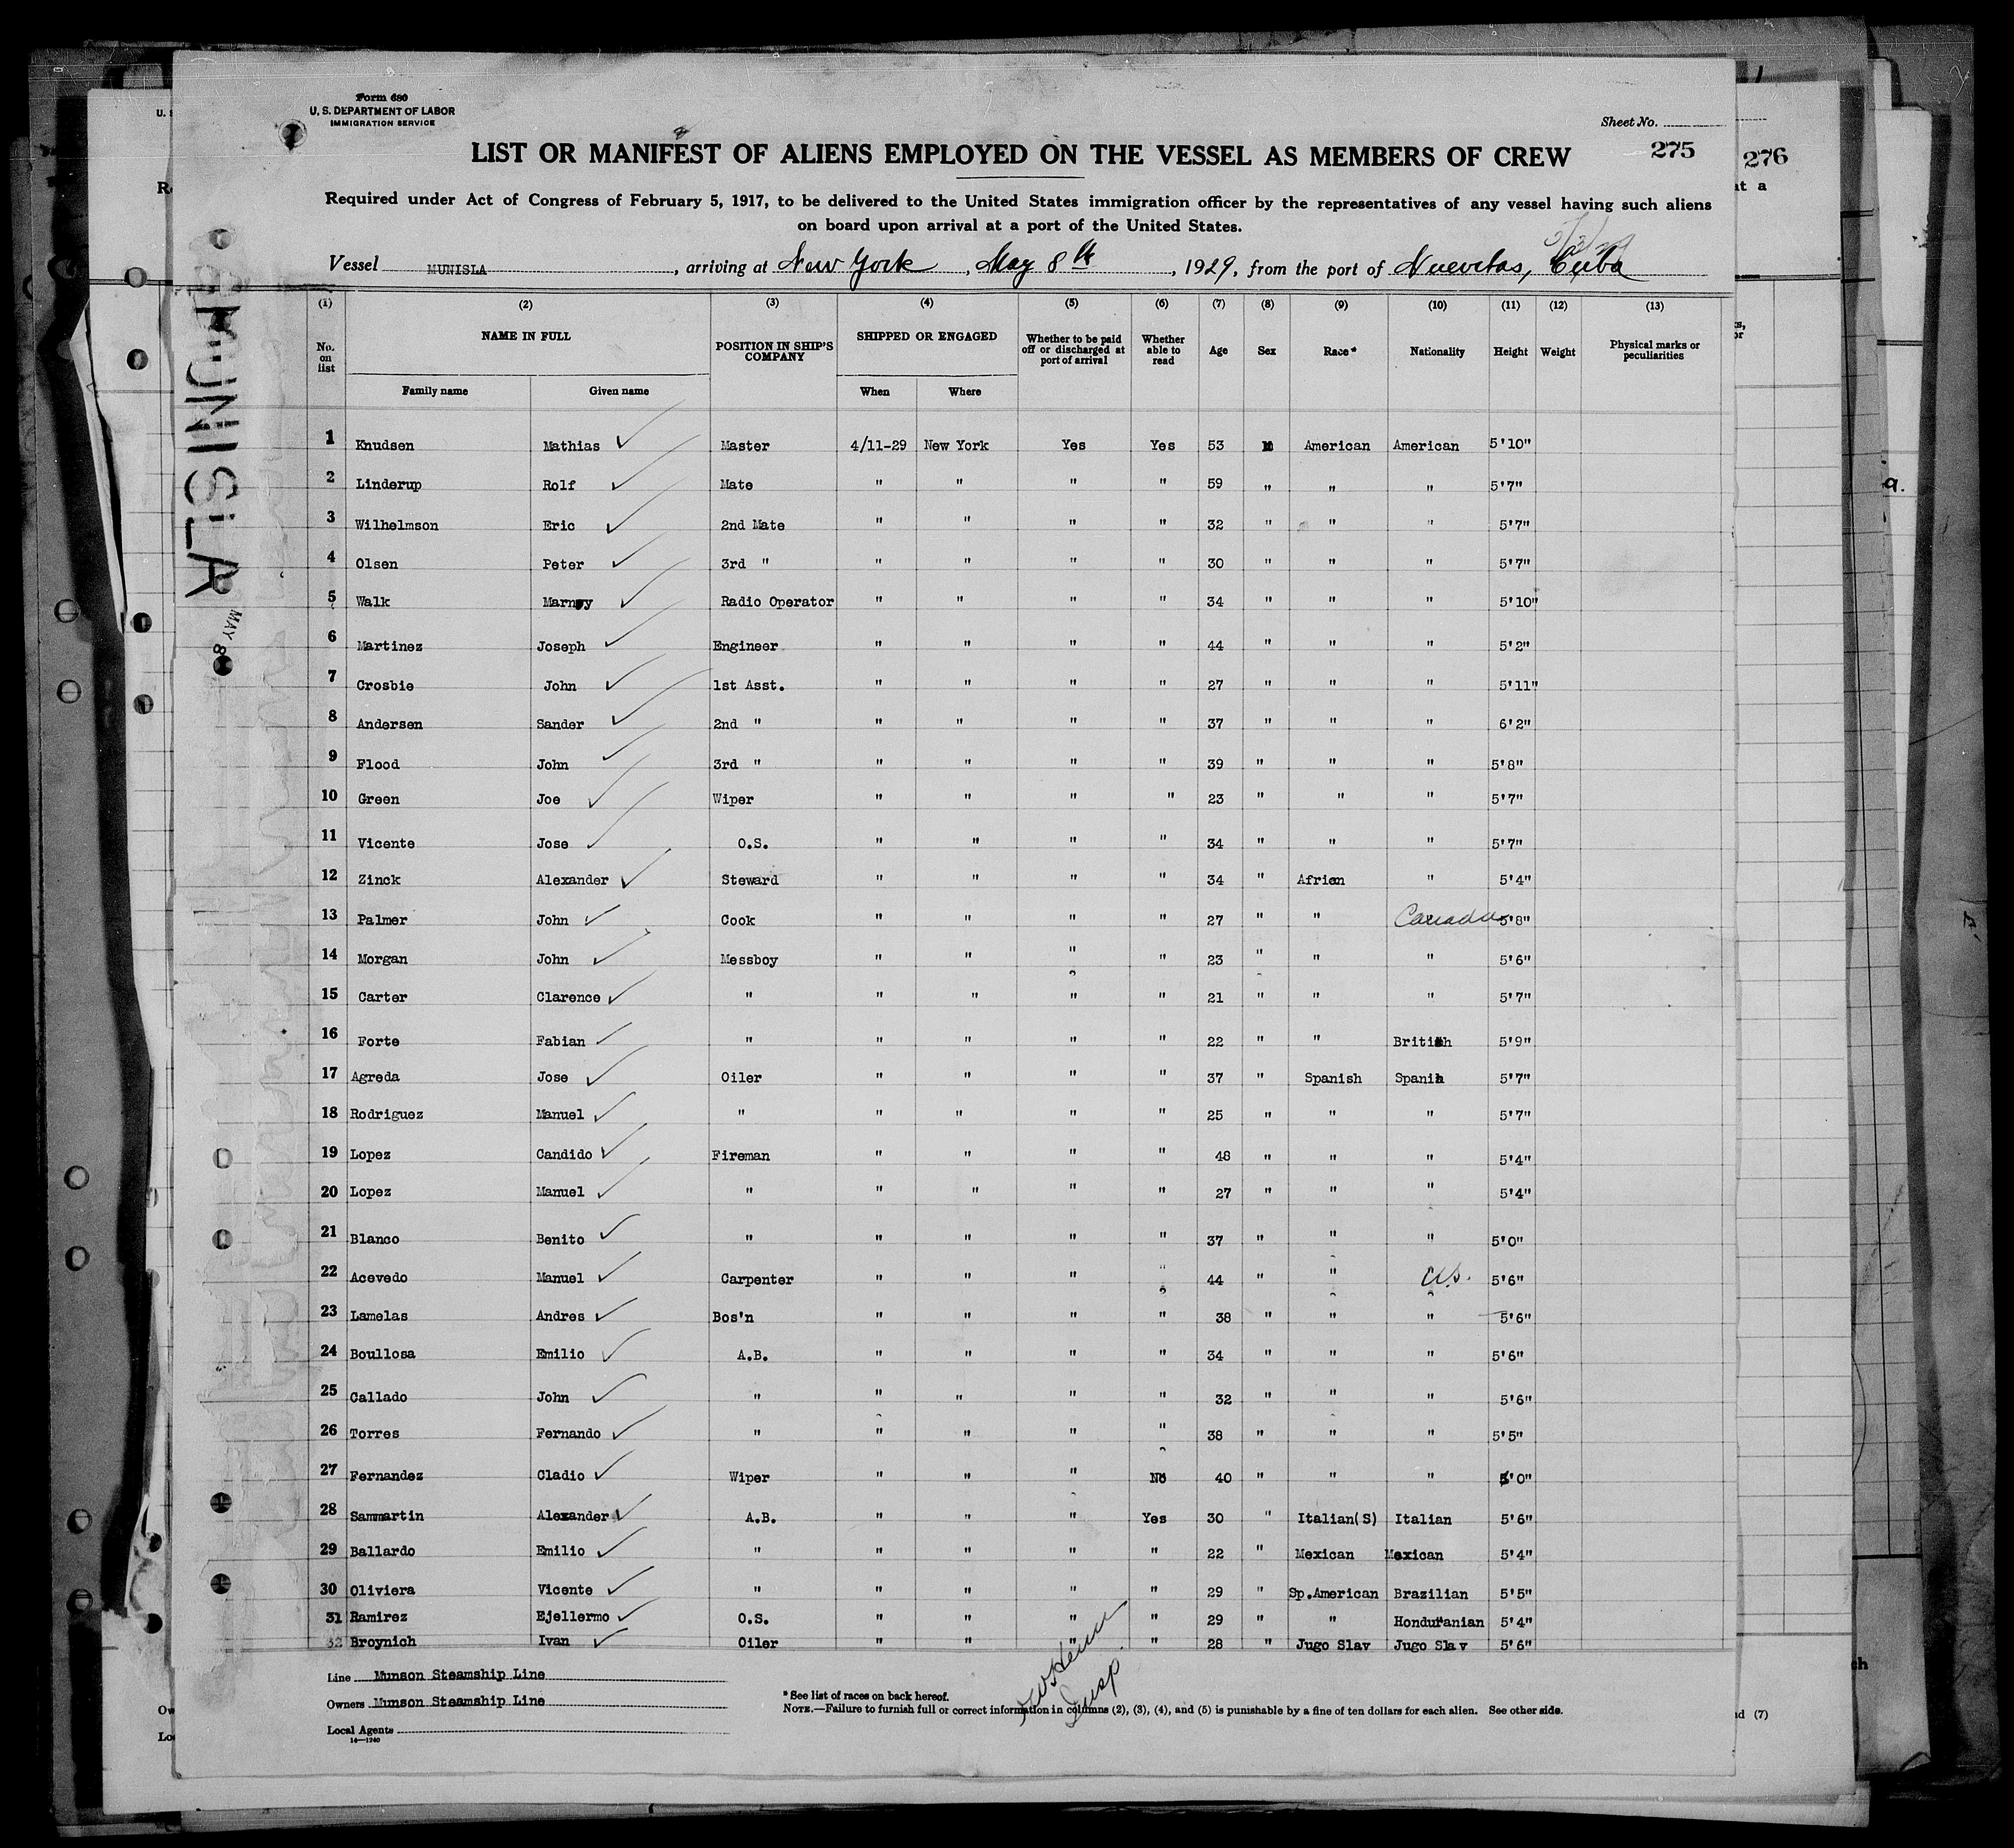 Form 680
U. S. DEPARTMENT OF LABOR
IMMIGRATION SERVICE
Sheet No.
LIST OR MANIFEST OF ALIENS EMPLOYED ON THE VESSEL AS MEMBERS OF CREW 275 276
Required under Act of Congress of February 5, 1917, to be delivered to the United States immigration officer by the representatives of any vessel having such aliens
on board upon arrival at a port of the United States.
Vessel MUNISLA, arriving at New York, May 8th, 1929, from the port of Nuevitas, Cuba
MUNISLA
MAY 8
(1) (2) (3) (4) (5) (6) (7) (8) (9) (10) (11) (12) (13)
No. on list NAME IN FULL POSITION IN SHIP'S COMPANY SHIPPED OR ENGAGED Whether to be paid off or discharged at port of arrival Whether able to read Age Sex Race* Nationality Height Weight Physical marks or peculiarities
Family name Given name When Where
1 Knudsen Mathias Master 4/11-29 New York Yes Yes 53 M American American 5'10"
2 Linderup Rolf Mate " " " " 59 " " " 5'7"
3 Wilhelmson Eric 2nd Mate " " " " 32 " " " 5'7"
4 Olsen Peter 3rd " " " " " 30 " " " 5'7"
5 Walk Radio Operator " " " " 34 " " " 5'10"
6 Martinez Joseph Engineer " " " " 44 " " " 5'2"
7 Crosbie John 1st Asst. " " " " 27 " " " 5'11"
8 Andersen Sander 2nd " " " " " 37 " " " 6'2"
9 Flood John 3rd " " " " " 39 " " " 5'8"
10 Green Joe Wiper " " " " 23 " " " 5'7"
11 Vicente Jose O.S. " " " " 34 " " " 5'7"
12 Zinck Alexander Steward " " " " 34 " African " 5'4"
13 Palmer John Cook " " " " 27 " " Canada 5'8"
14 Morgan John Messboy " " " " 23 " " " 5'6"
15 Carter Clarence " " " " " 21 " " " 5'7"
16 Forte Fabian " " " " " 22 " " British 5'9"
17 Agreda Jose Oiler " " " " 37 " Spanish Spanih 5'7"
18 Rodriguez Manuel " " " " " 25 " " " 5'7"
19 Lopez Candido Fireman " " " " 48 " " " 5'4"
20 Lopez Manuel " " " " " 27 " " " 5'4"
21 Blanco Benito " " " " " 37 " " " 5'0"
22 Acevedo Manuel Carpenter " " " " 44 " " U.S. 5'6"
23 Lamelas Andres Bos'n " " " " 38 " " " 5'6"
24 Boullosa Emilio A.B. " " " " 34 " " " 5'6"
25 Callado John " " " " " 32 " " " 5'6"
26 Torres Fernando " " " " " 38 " " " 5'5"
27 Fernandez Cladio Wiper " " " No 40 " " " 5'0"
28 Sammartin Alexander A.B. " " " Yes 30 " Italian(S) Italian 5'6"
29 Ballardo Emilio " " " " " 22 " Mexican Mexican 5'4"
30 Oliviera Vicente " " " " " 29 " Sp.American Brazilian 5'5"
31 Ramirez Ejellermo O.S. " " " " 29 " " Honduranian 5'4"
32 Broynich Ivan Oiler " " " " 28 " Jugo Slav Jugo Slav 5'6"
Line Munson Steamship Line
Owners Munson Steamship Line
Local Agents
14—1240
* See list of races on back hereof.
NOTE.—Failure to furnish full or correct information in columns (2), (3), (4), and (5) is punishable by a fine of ten dollars for each alien. See other side.
Insp